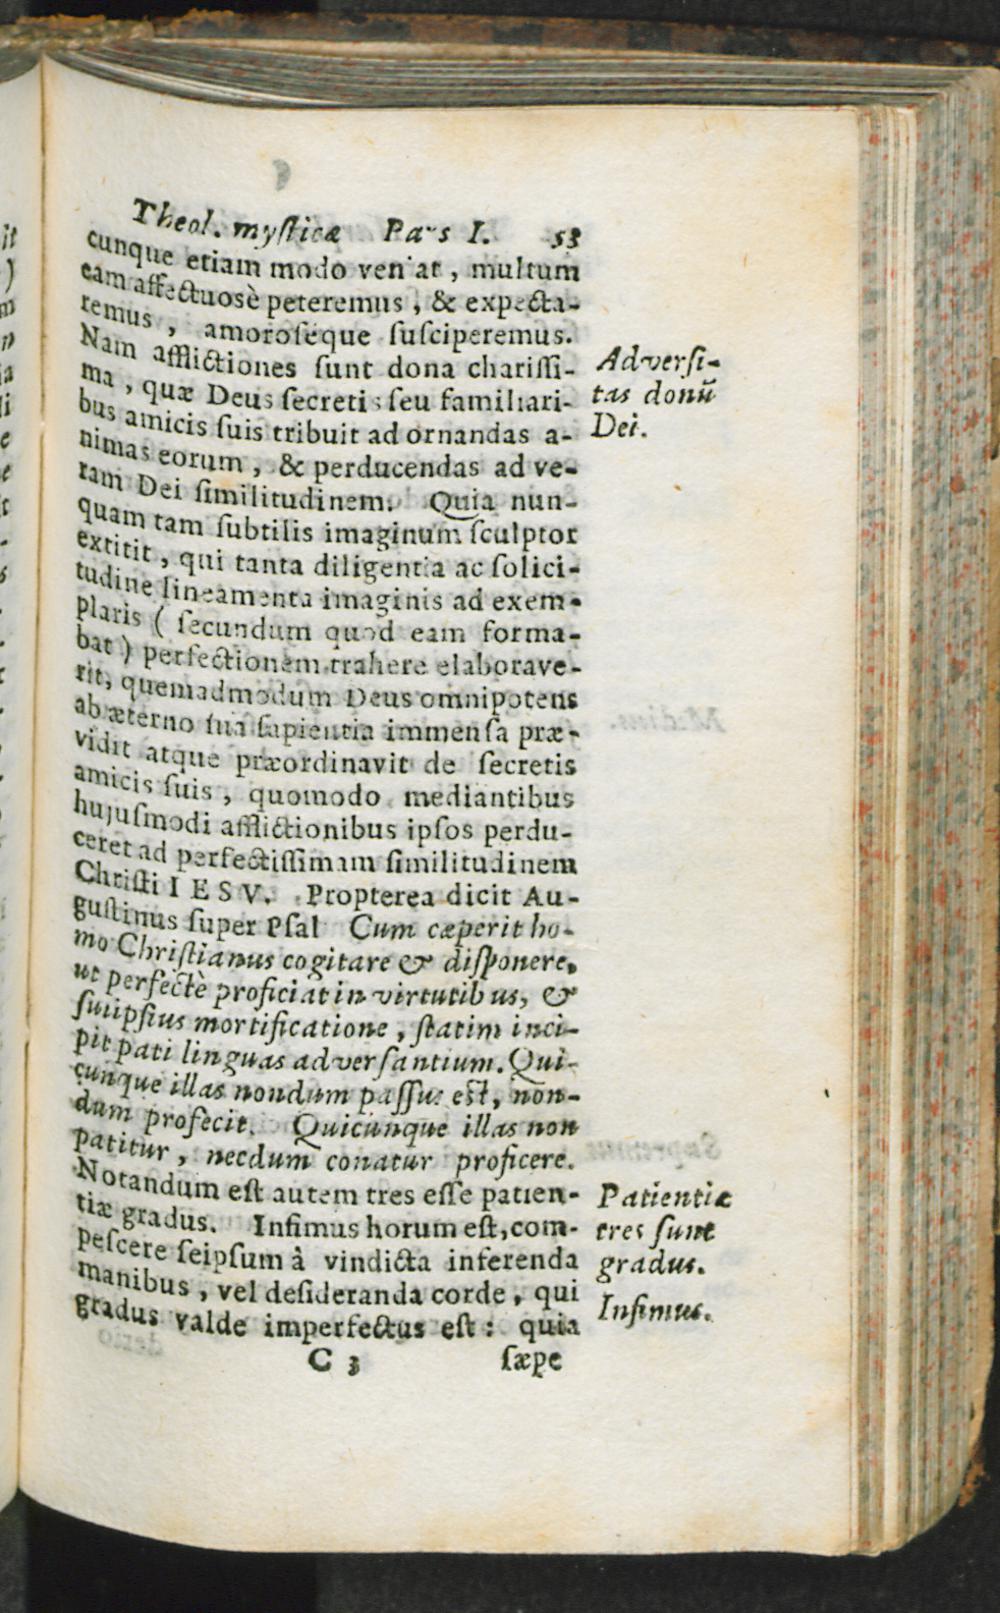 Theol. mysticæ Pars I. 53
cunque etiam modo veniat, multum
eam affectuosè peteremus, & expecta-
remus, amoroseque susciperemus.
Nam afflictiones sunt dona charissi-
ma, quæ Deus secretis seu familiari-
bus amicis suis tribuit ad ornandas a-
nimas eorum, & perducendas ad ve-
ram Dei similitudinem. Quia nun-
quam tam subtilis imaginum sculptor
extitit, qui tanta diligentia ac solici-
tudine lineamenta imaginis ad exem-
plaris (secundum quod eam forma-
bat) perfectionem trahere elaborave-
rit, quemadmodum Deus omnipotens
ab æterno sua sapientia immensa præ-
vidit atque præordinavit de secretis
amicis suis, quomodo mediantibus
hujusmodi afflictionibus ipsos perdu-
ceret ad perfectissimam similitudinem
Christi IESV. Propterea dicit Au-
gustinus super Psal Cum cæperit ho-
mo Christianus cogitare & disponere,
ut perfectè proficiat in virtutibus, &
suiipsius mortificatione, statim inci-
pit pati linguas adversantium. Qui-
cunque illas nondum passus est, non-
dum profecit. Quicunque illas non
patitur, necdum conatur proficere.
Notandum est autem tres esse patien-
tiæ gradus. Infimus horum est, com-
pescere seipsum à vindicta inferenda
manibus, vel desideranda corde, qui
gradus valde imperfectus est: quia
C 3 sæpe
Adversi-
tas donũ
Dei.
Patientiæ
tres sunt
gradus.
Infimus.